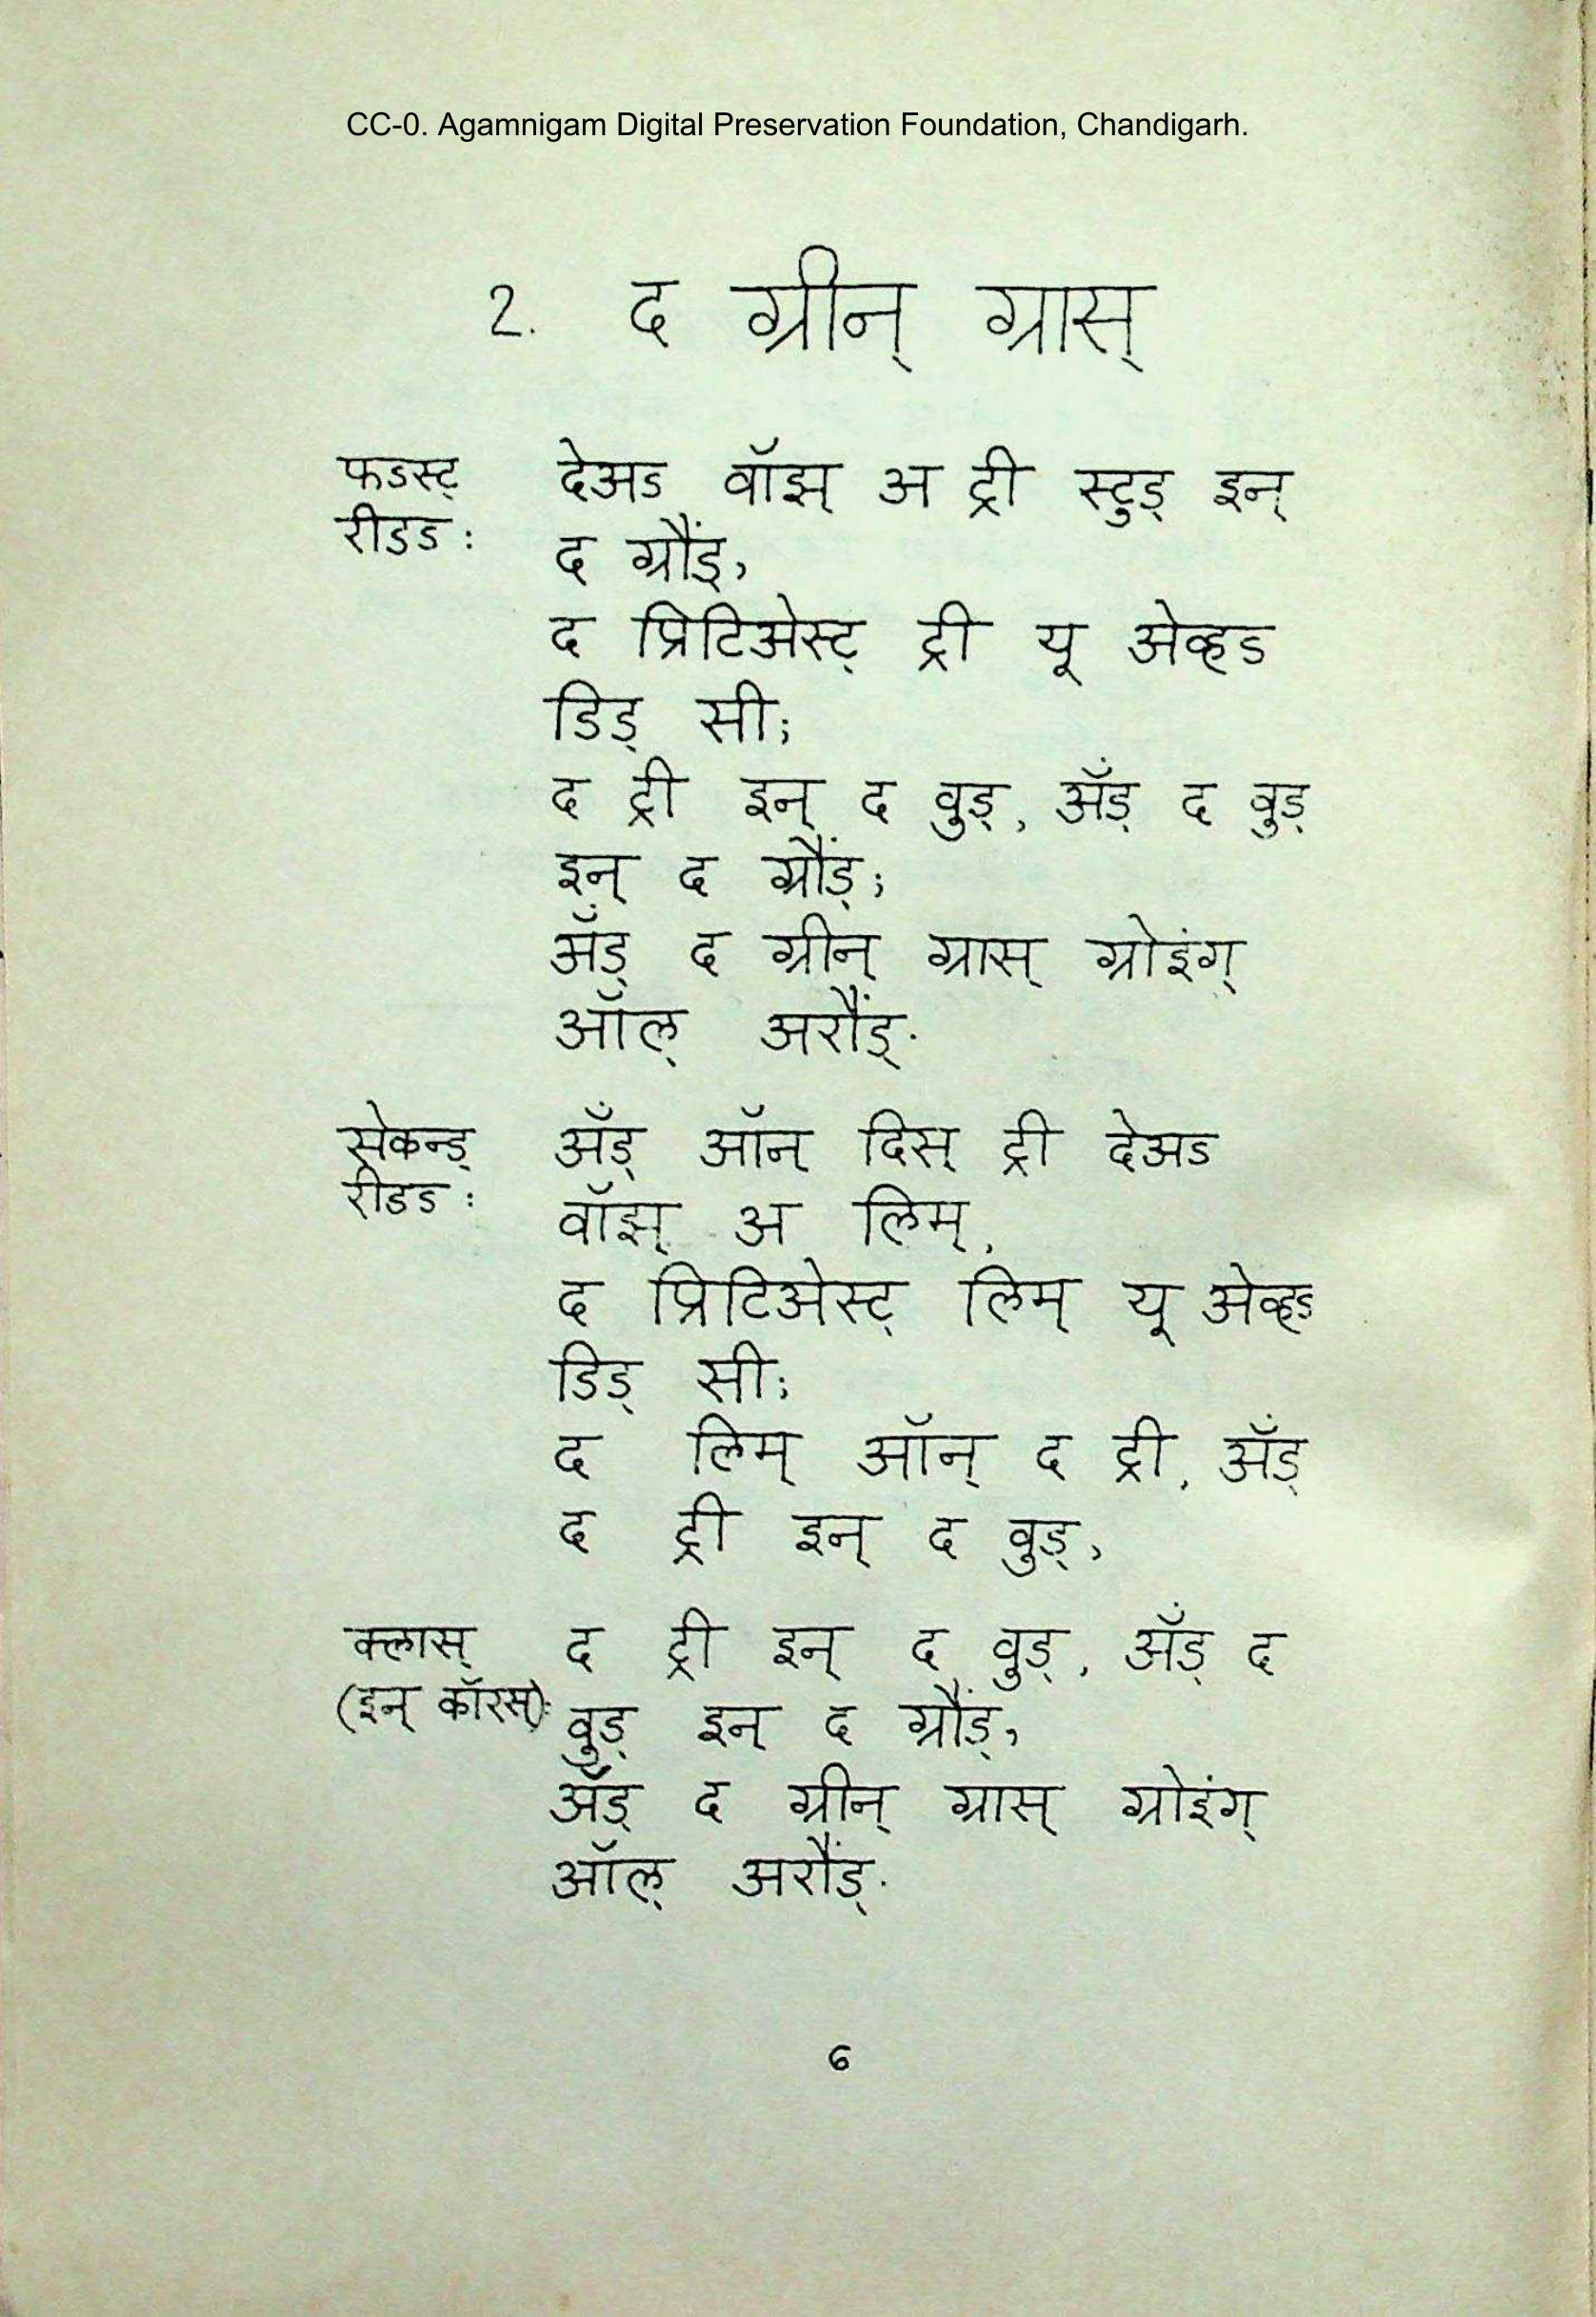 CC-0. Agamnigam Digital Preservation Foundation, Chandigarh.
2. द ग्रीन् ग्रास्
फऽस्ट् देअऽ वॉझ् अ ट्री स्टुड् इन्
रीडऽ : द ग्रौंड्,
द प्रिटिअेस्ट् ट्री यू अेव्हऽ
डिड् सी;
द ट्री इन् द वुड्, ॲंड् द वुड्
इन् द ग्रौंड्;
ॲंड् द ग्रीन् ग्रास् ग्रोइंग्
ऑल् अरौंड्.
सेकन्ड् ॲंड् ऑन् दिस् ट्री देअऽ
रीडऽ : वॉझ् अ लिम्,
द प्रिटिअेस्ट् लिम् यू अेव्हऽ
डिड् सी;
द लिम् ऑन् द ट्री, ॲंड्
द ट्री इन् द वुड्,
क्लास् द ट्री इन् द वुड्, ॲंड् द
(इन् कॉरस्): वुड् इन् द ग्रौंड्,
ॲंड् द ग्रीन् ग्रास् ग्रोइंग्
ऑल् अरौंड्.
6